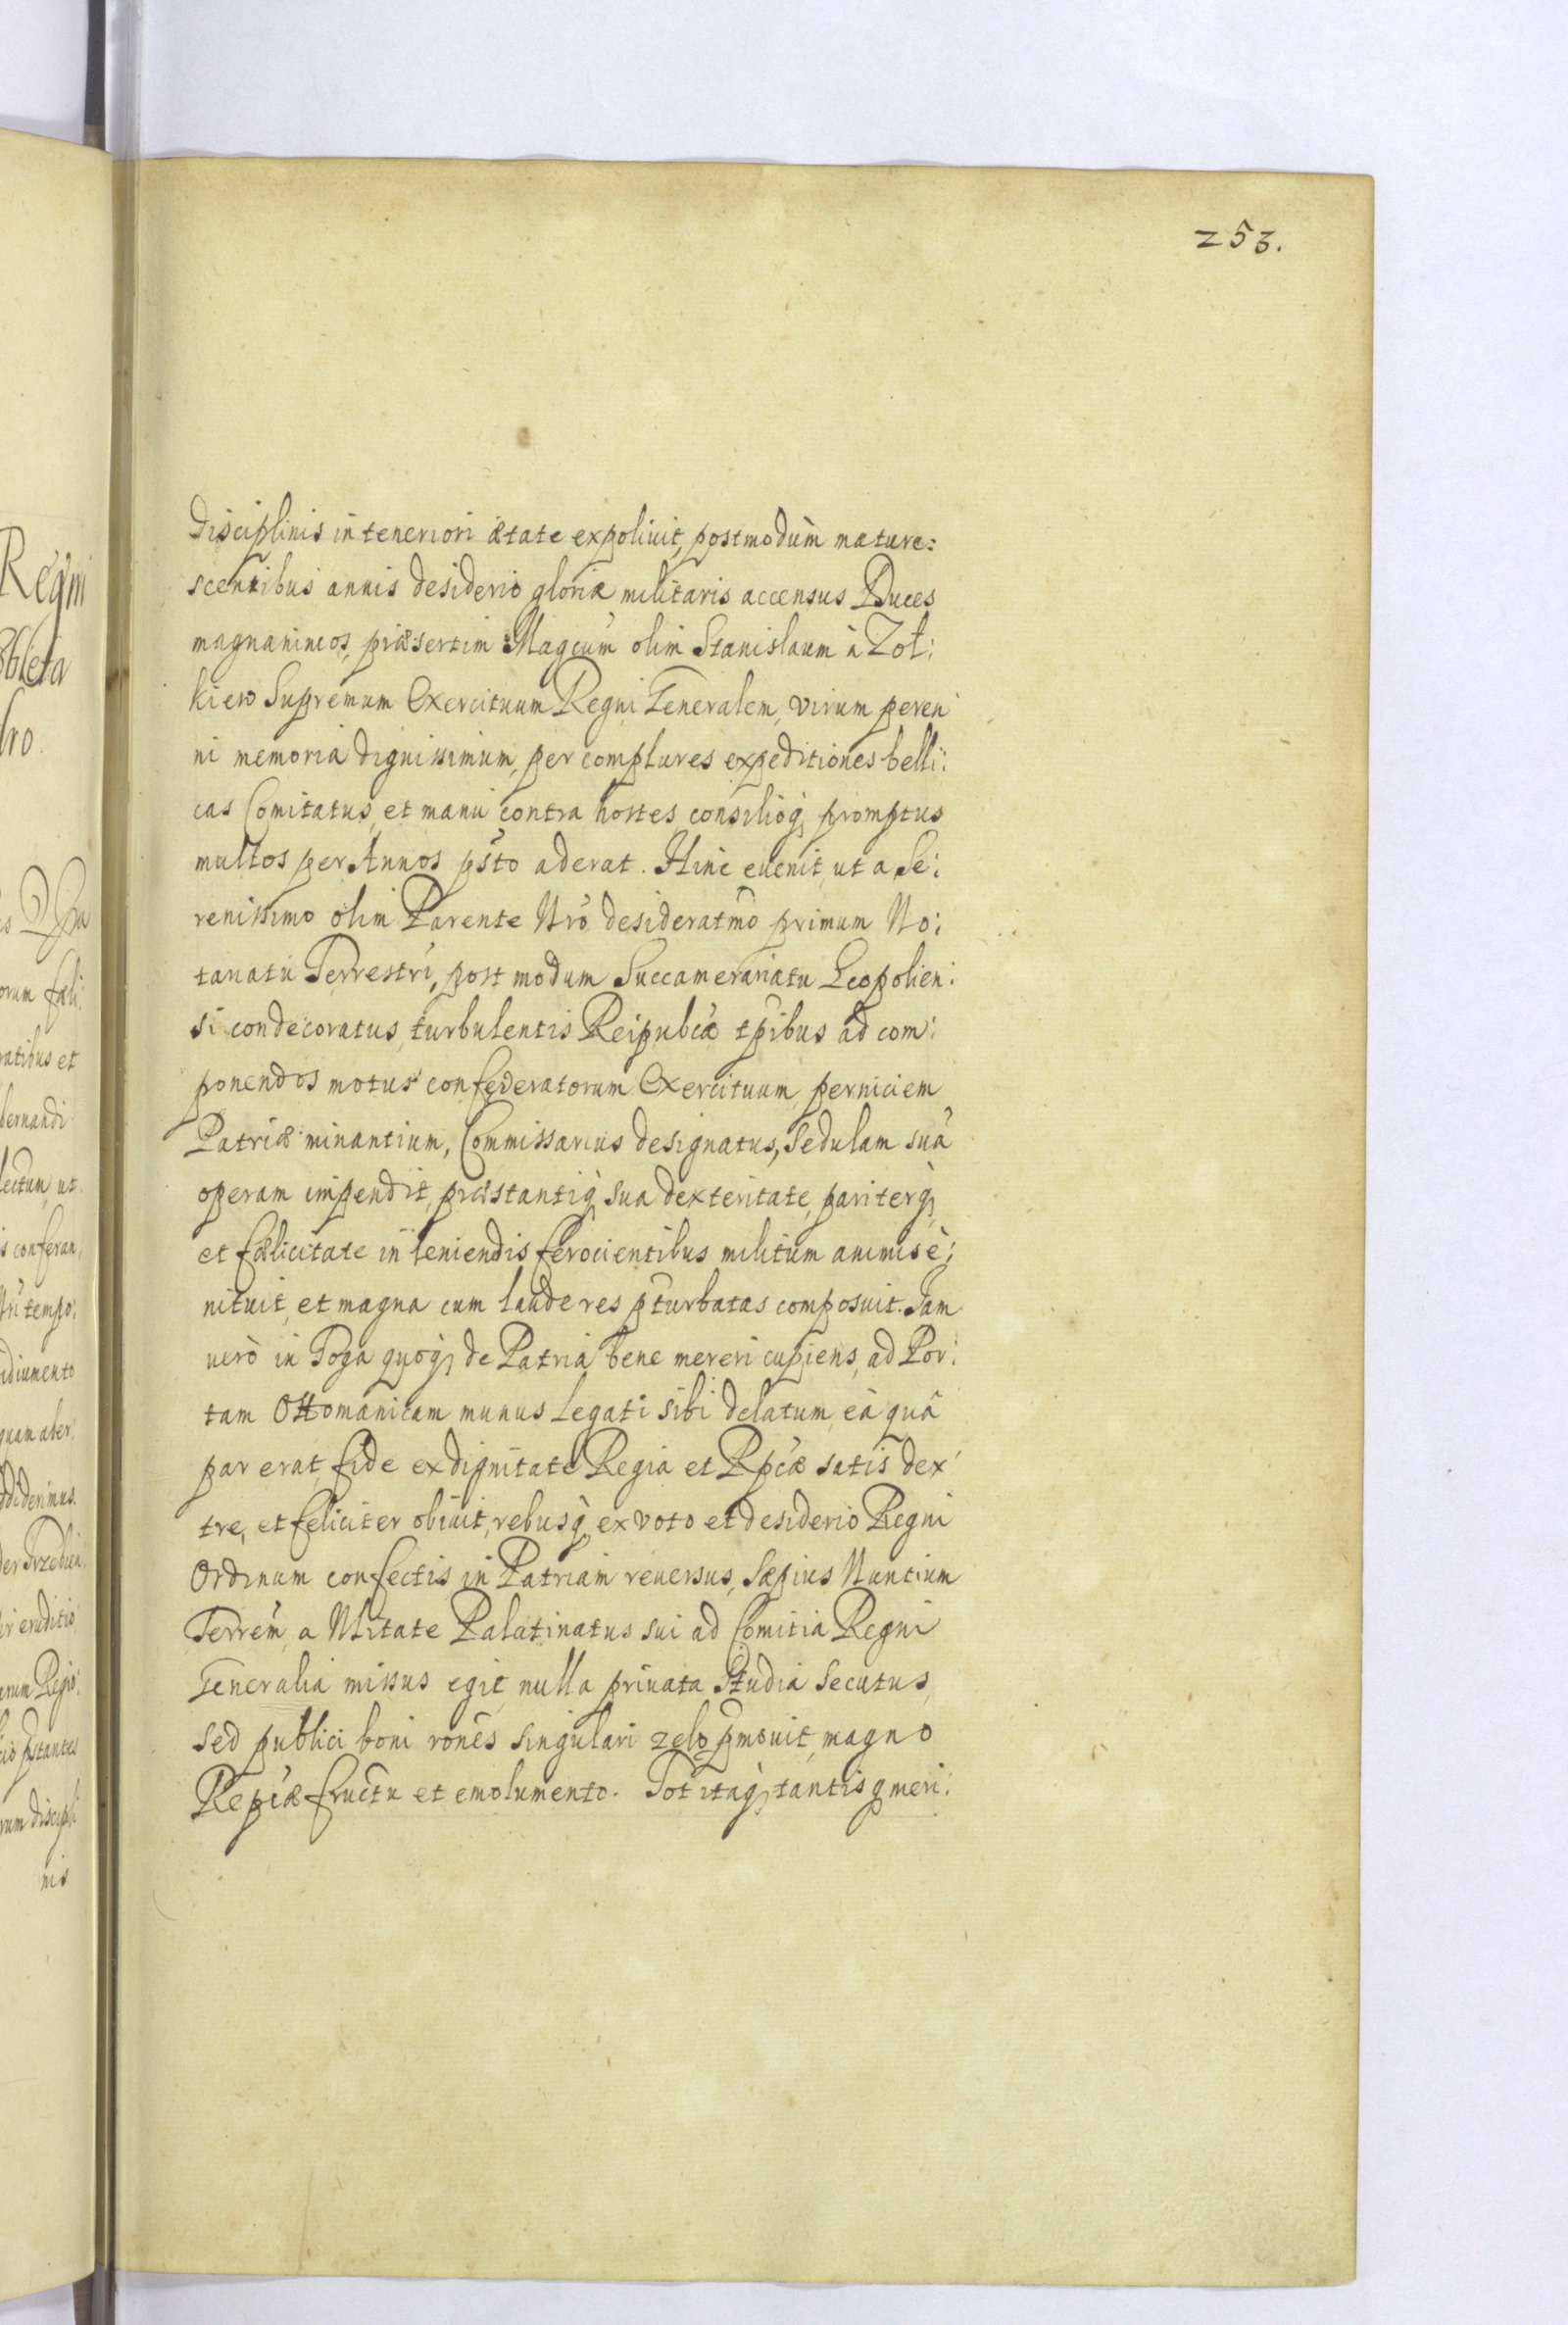 253.
Disciplinis in teneriori ætate expoliuit, postmodùm mature:
scentibus annis desiderio gloriæ militaris accensus Duces
magnanimos, præsertim Magcum̃ olim Stanislaum à Zoł:
kiew Supremum Exercituum Regni Generalem, virum peren
ni memoria dignissimum, per complures expeditiones belli:
cas Comitatus, et manu contra hostes consilioq; promptus
multos per Annos psto aderat. Hinc euenit, ut a Se:
renissimo olim Parente Nrõ desideratmo primum No:
tariatu Terrestri, post modum Succamerariatu Leopolien:
si condecoratus, turbulentis Reipubcæ tpibus ad com:
ponendos motus confederatorum Exercituum, perniciem
Patriæ minantium, Commissarius designatus, sedulam suã
operam impendit, præstantiq; sua dexteritate, pariterq;
et fælicitate in leniendis ferocientibus militum animis è:
nituit, et magna cum laude res pturbatas composuit. Jam
uerò in Toga quoq; de Patria bene mereri cupiens, ad Por:
tam Ottomanicam munus Legati sibi delatum, eà quâ
par erat, fide ex dignitate Regia et Rpcæ satis dex:
tre, et feliciter obiuit, rebusq; ex voto et desiderio Regni
Ordinum confectis, in Patriam reuersus, sæpius Nuntium
Terrem̃ a Nbitate Palatinatus sui ad Comitia Regni
Generalia missus egit, nulla priuata studia secutus,
sed publici boni rones singulari zelo pmouit, magno
Reipcæ fructu et emolumento. Tot itaq; tantisq meri:
Regni